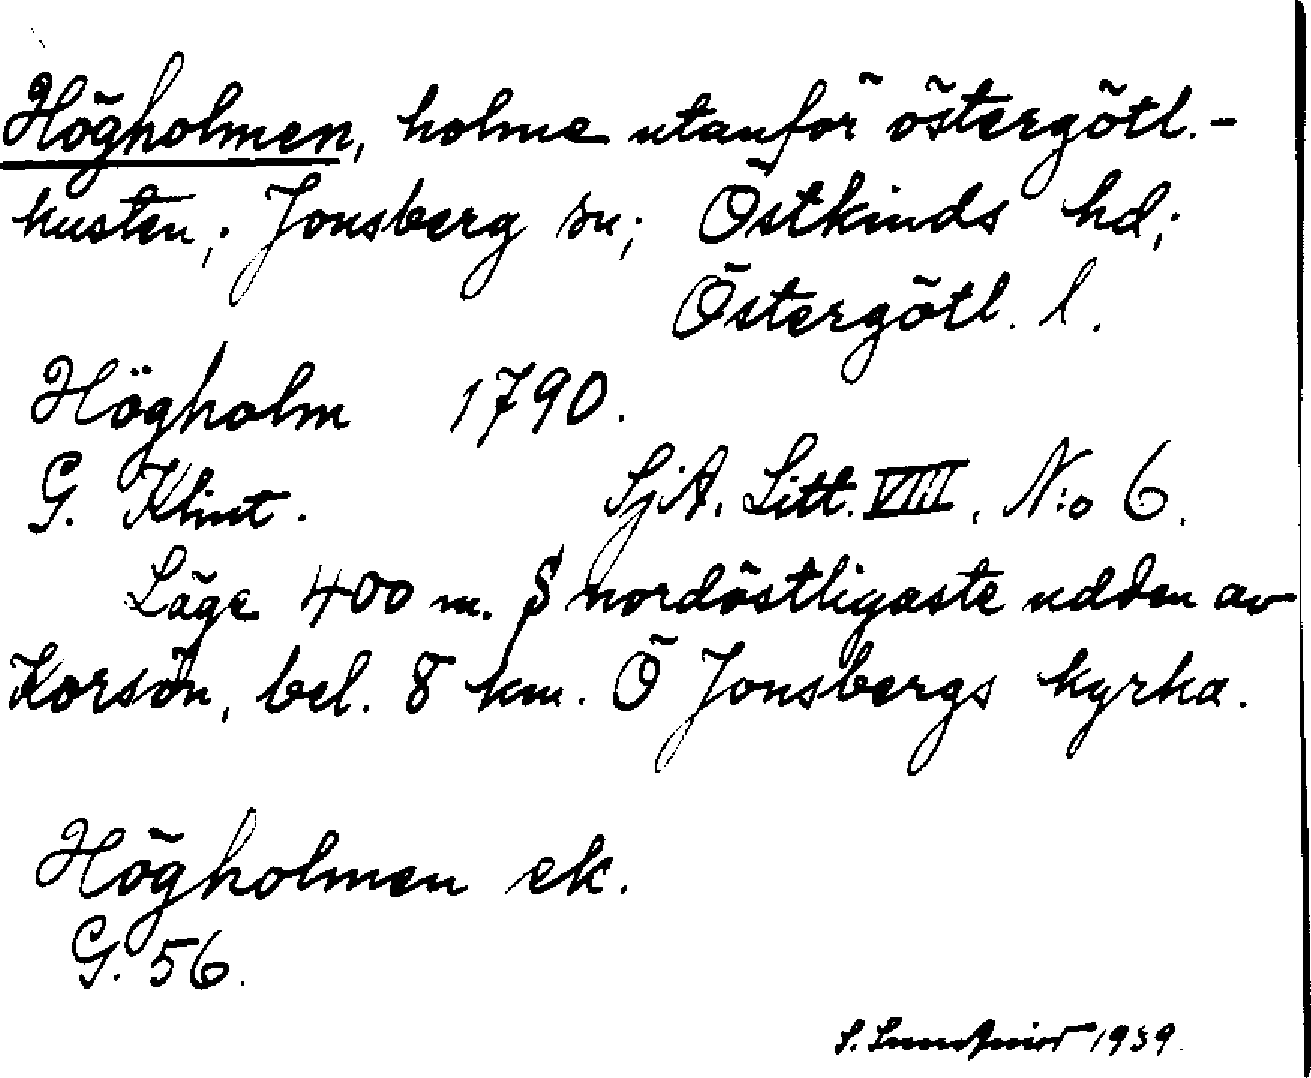 Högholmen, holme utanför östergötl.-
kusten; Jonsberg sn; Östkinds hd;
Östergötl. l.
Högholm 1790.
G. Klint. SjA. Litt. VIII, N:o 6.
Läge 400 m. S nordöstligaste udden av
Korsön, bel. 8 km. Ö Jonsbergs kyrka.
Högholmen ek.
G. 56.
S. 1939.